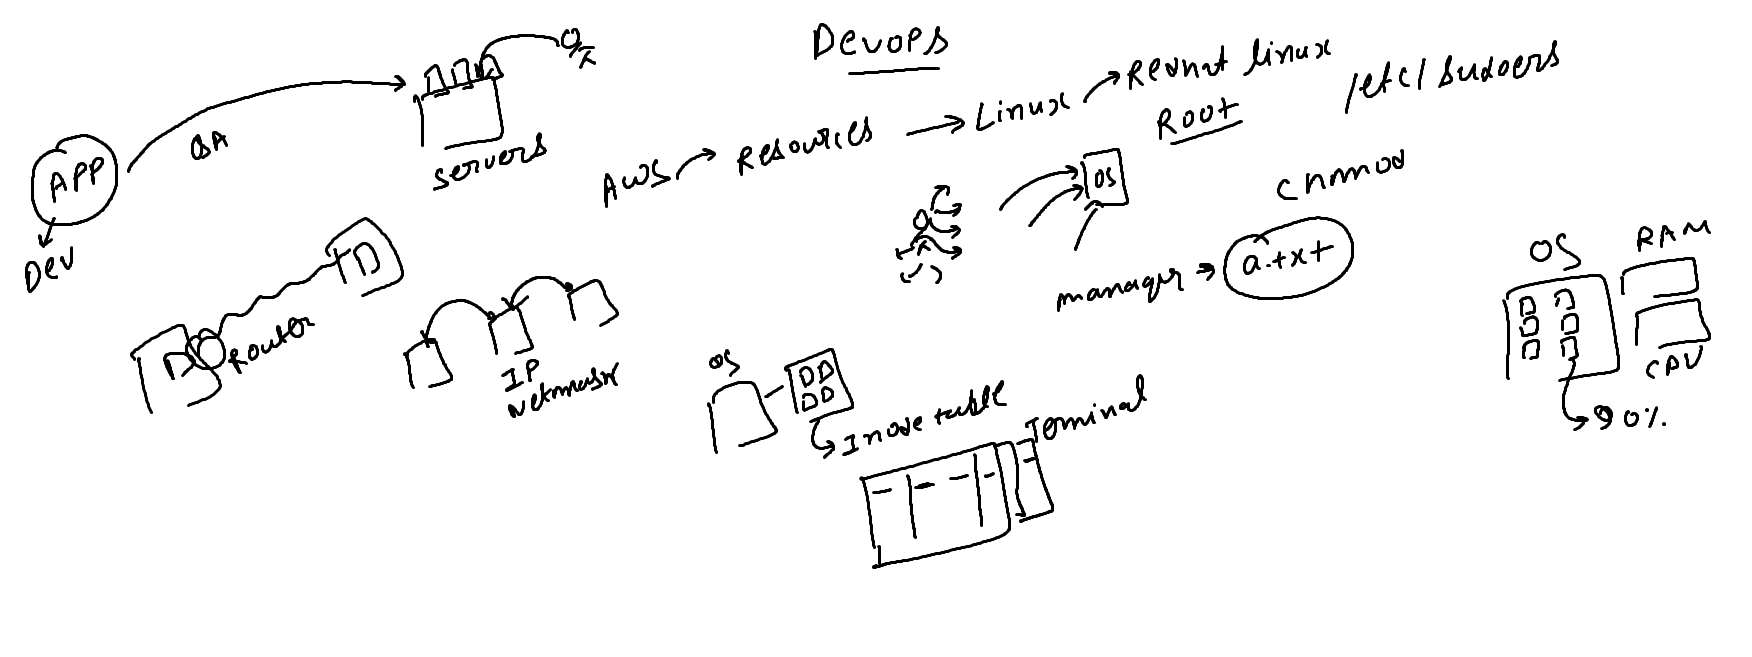 Devops
APP
QA
servers
Dev
AWS → Resources → Linux → Redhat linux
Root
/etc/sudoers
OS
chmod
manager → a.txt
Router
IP
Netmask
OS
Inode table
Terminal
OS
RAM
CPU
90%